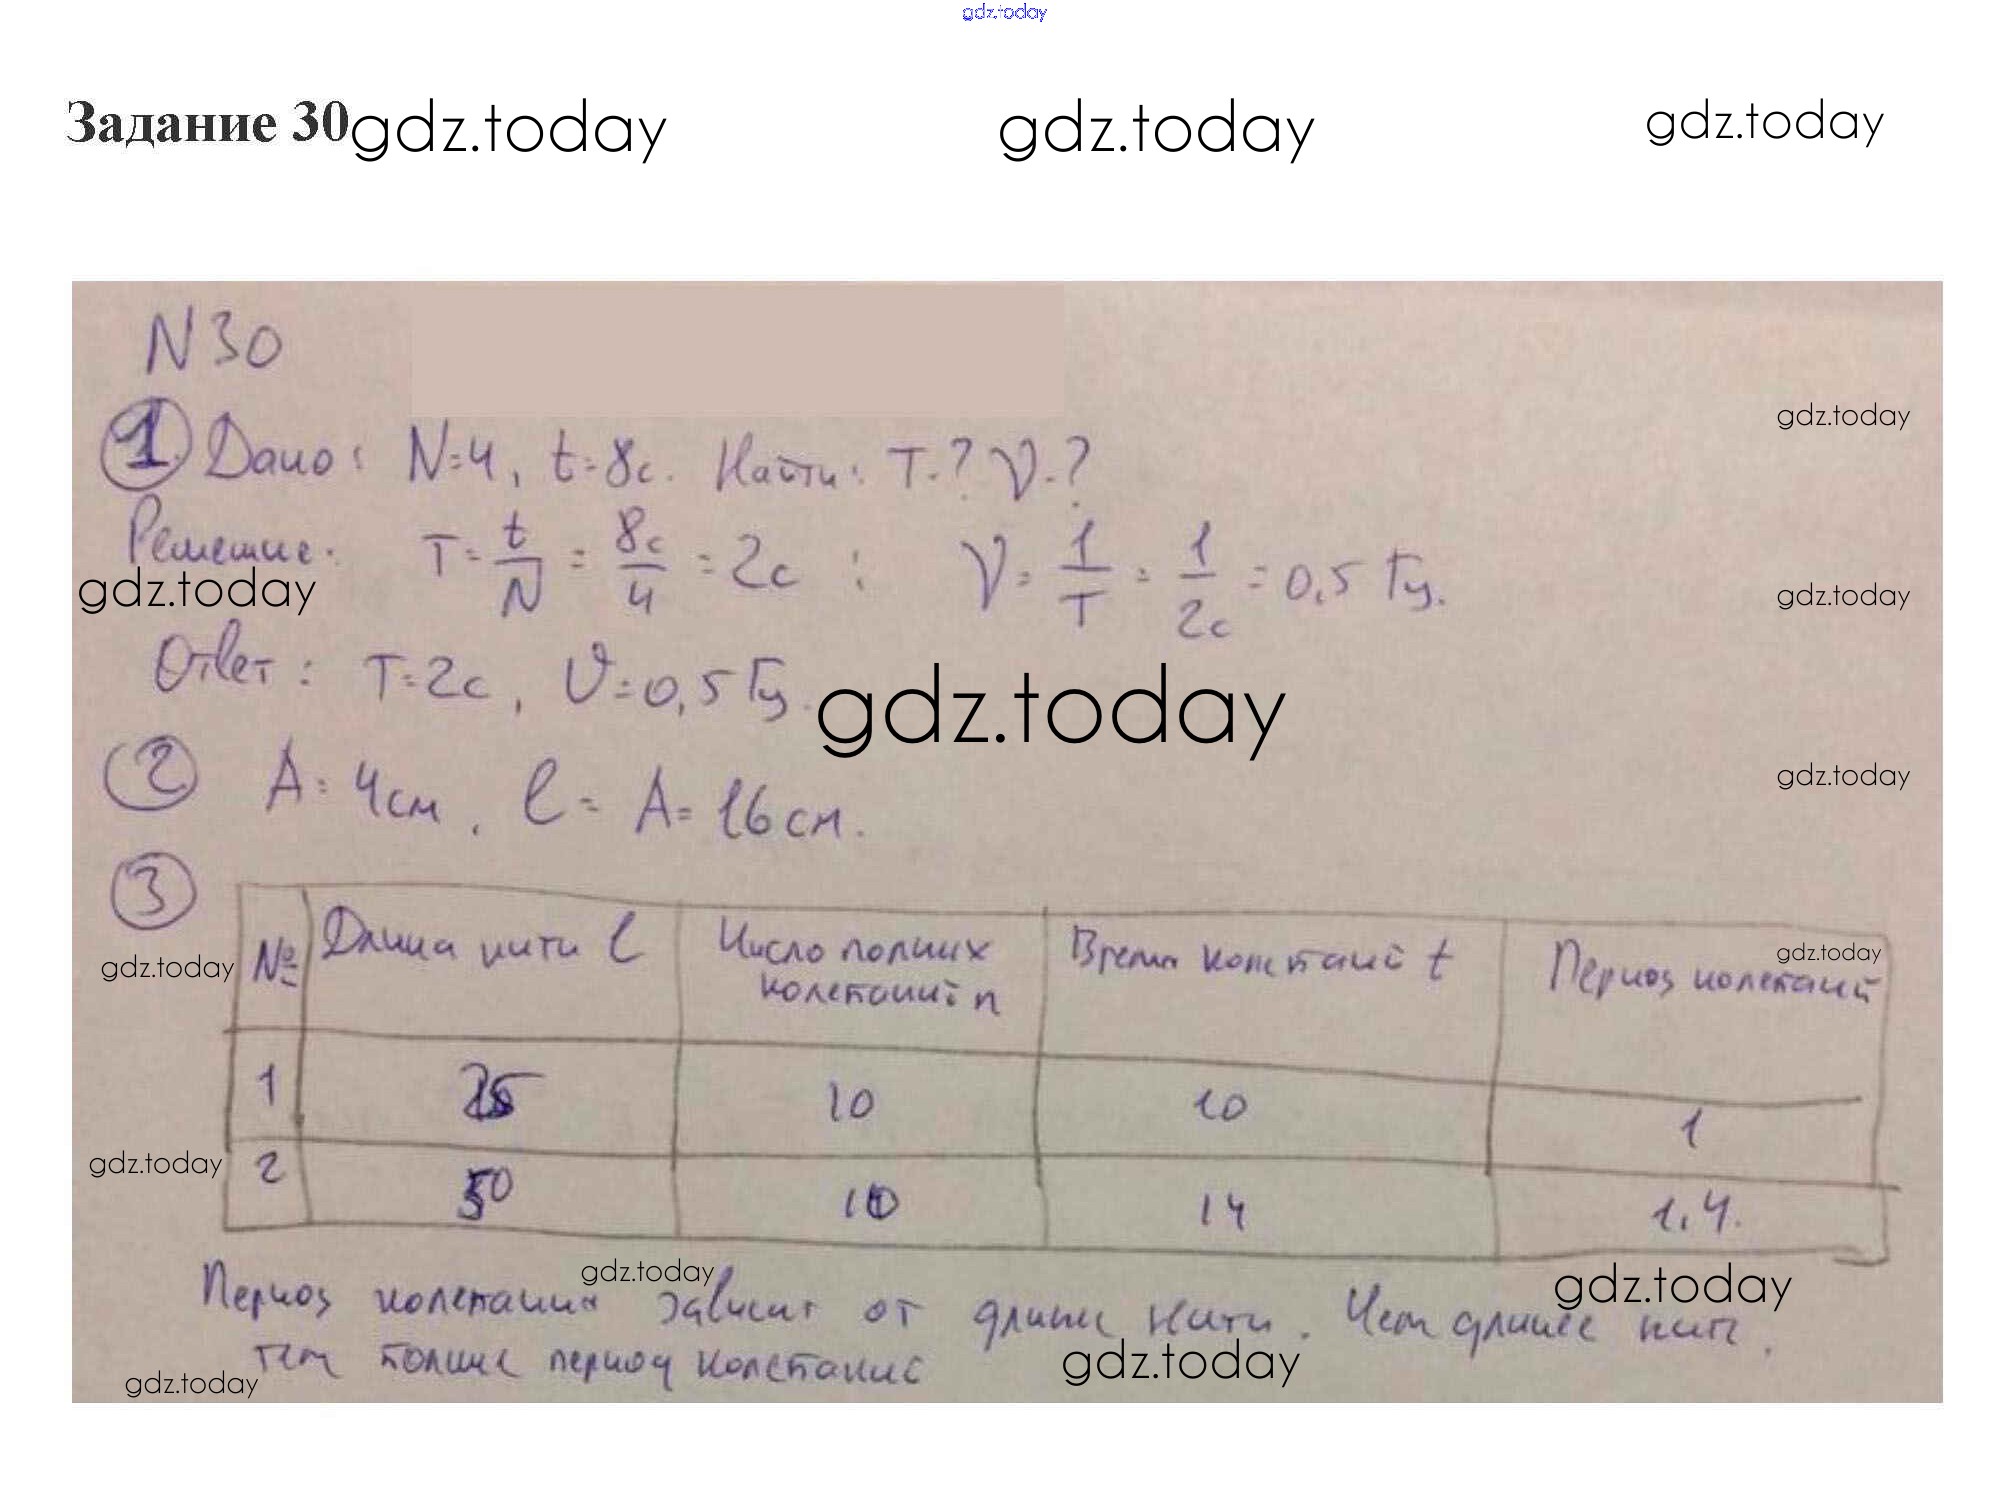 gdz.today
Задание 30 gdz.today gdz.today gdz.today
N 30
gdz.today
1. Дано: N=4, t=8с. Найти: T-? ν-?
Решение: T=t/N = 8с/4 = 2с ; ν=1/T = 1/2с = 0,5 Гц.
gdz.today gdz.today
Ответ: T=2с, υ=0,5 Гц.
gdz.today
gdz.today
2 A=4см, l= A=16см.
3
№ Длина нити l Число полных колебаний n Время колебаний t Период колебаний
gdz.today gdz.today
1 25 10 10 1
gdz.today
2 50 10 14 1,4.
gdz.today gdz.today
Период колебания зависит от длины нити. Чем длинее нить,
тем больше период колебание
gdz.today gdz.today